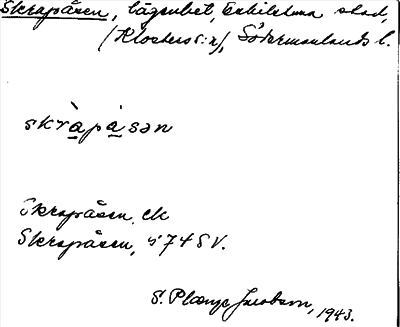 Skrapåsen, lägenhet, Eskilstuna stad,
(Klosters s:n), Södermanlands l.
skràpå̀sən
Skrapåsen, ek
Skrapåsen, 574 SV.
S. Plænge Jacobson, 1943.